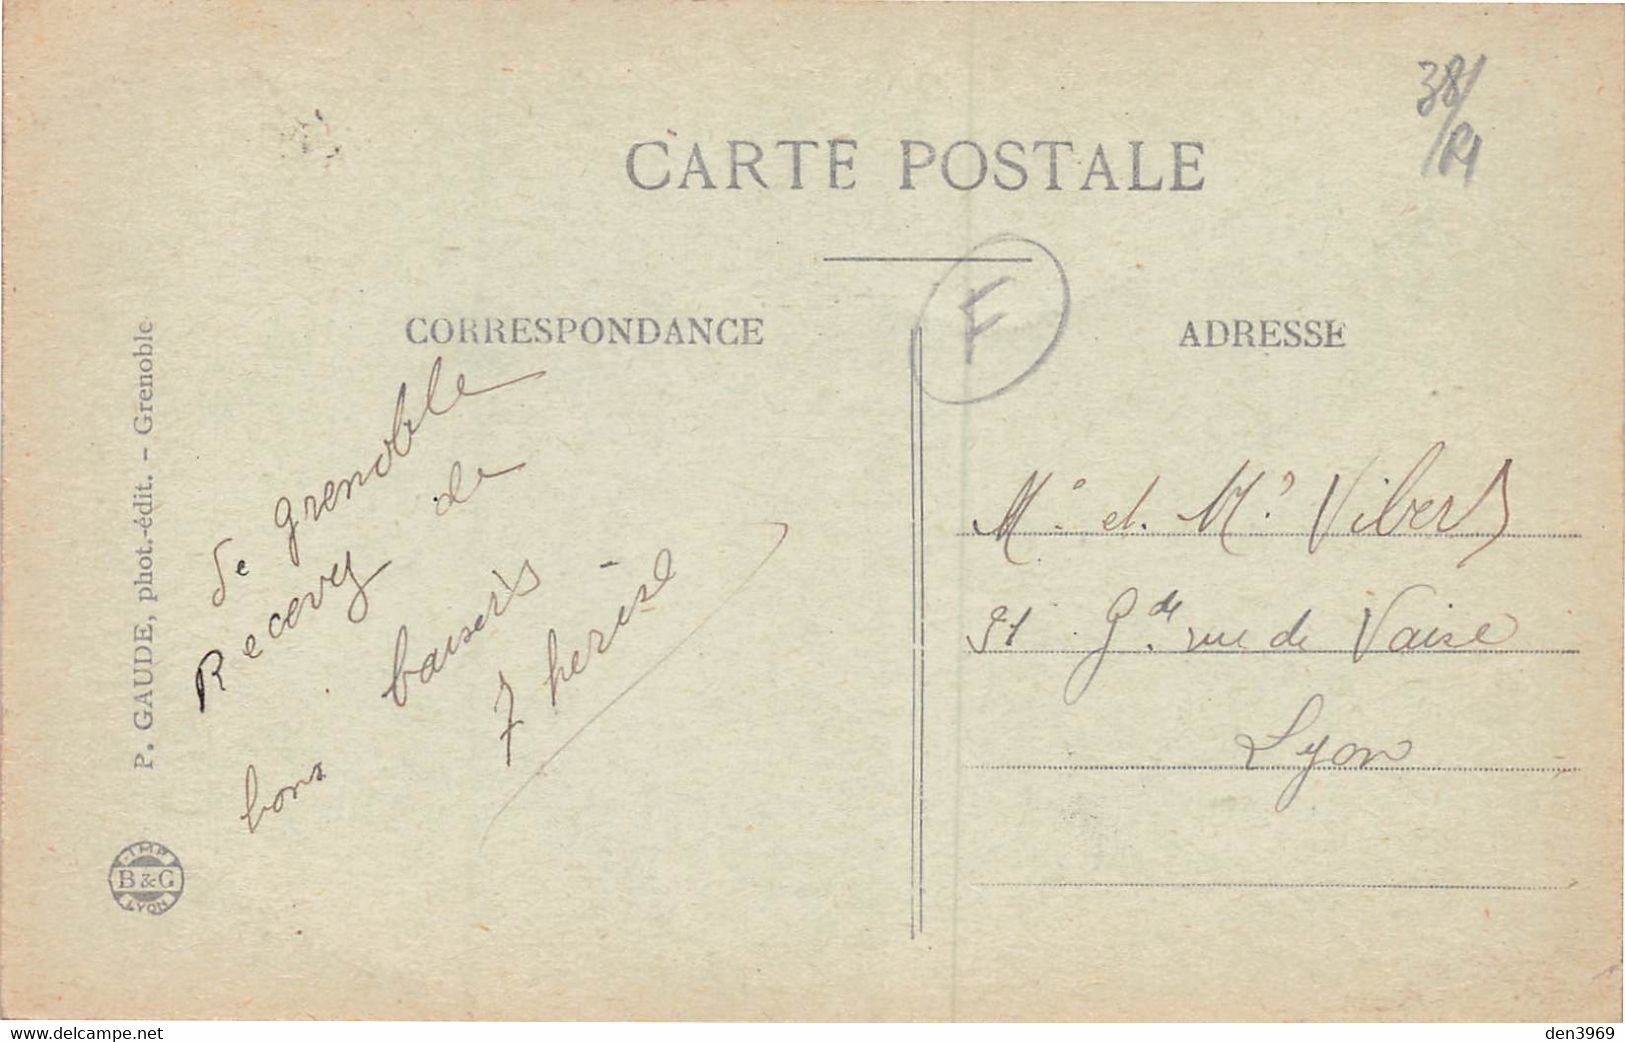 38/
R1
CARTE POSTALE
F
CORRESPONDANCE
ADRESSE
P. GAUDE, phot.-édit. - Grenoble
De Grenoble
Recevez de
bons baisers
Thérèse
Mr et Mme Vibert
91 Gde rue de Vaise
Lyon
IMP.
B & G
LYON
www.delcampe.net
den3969